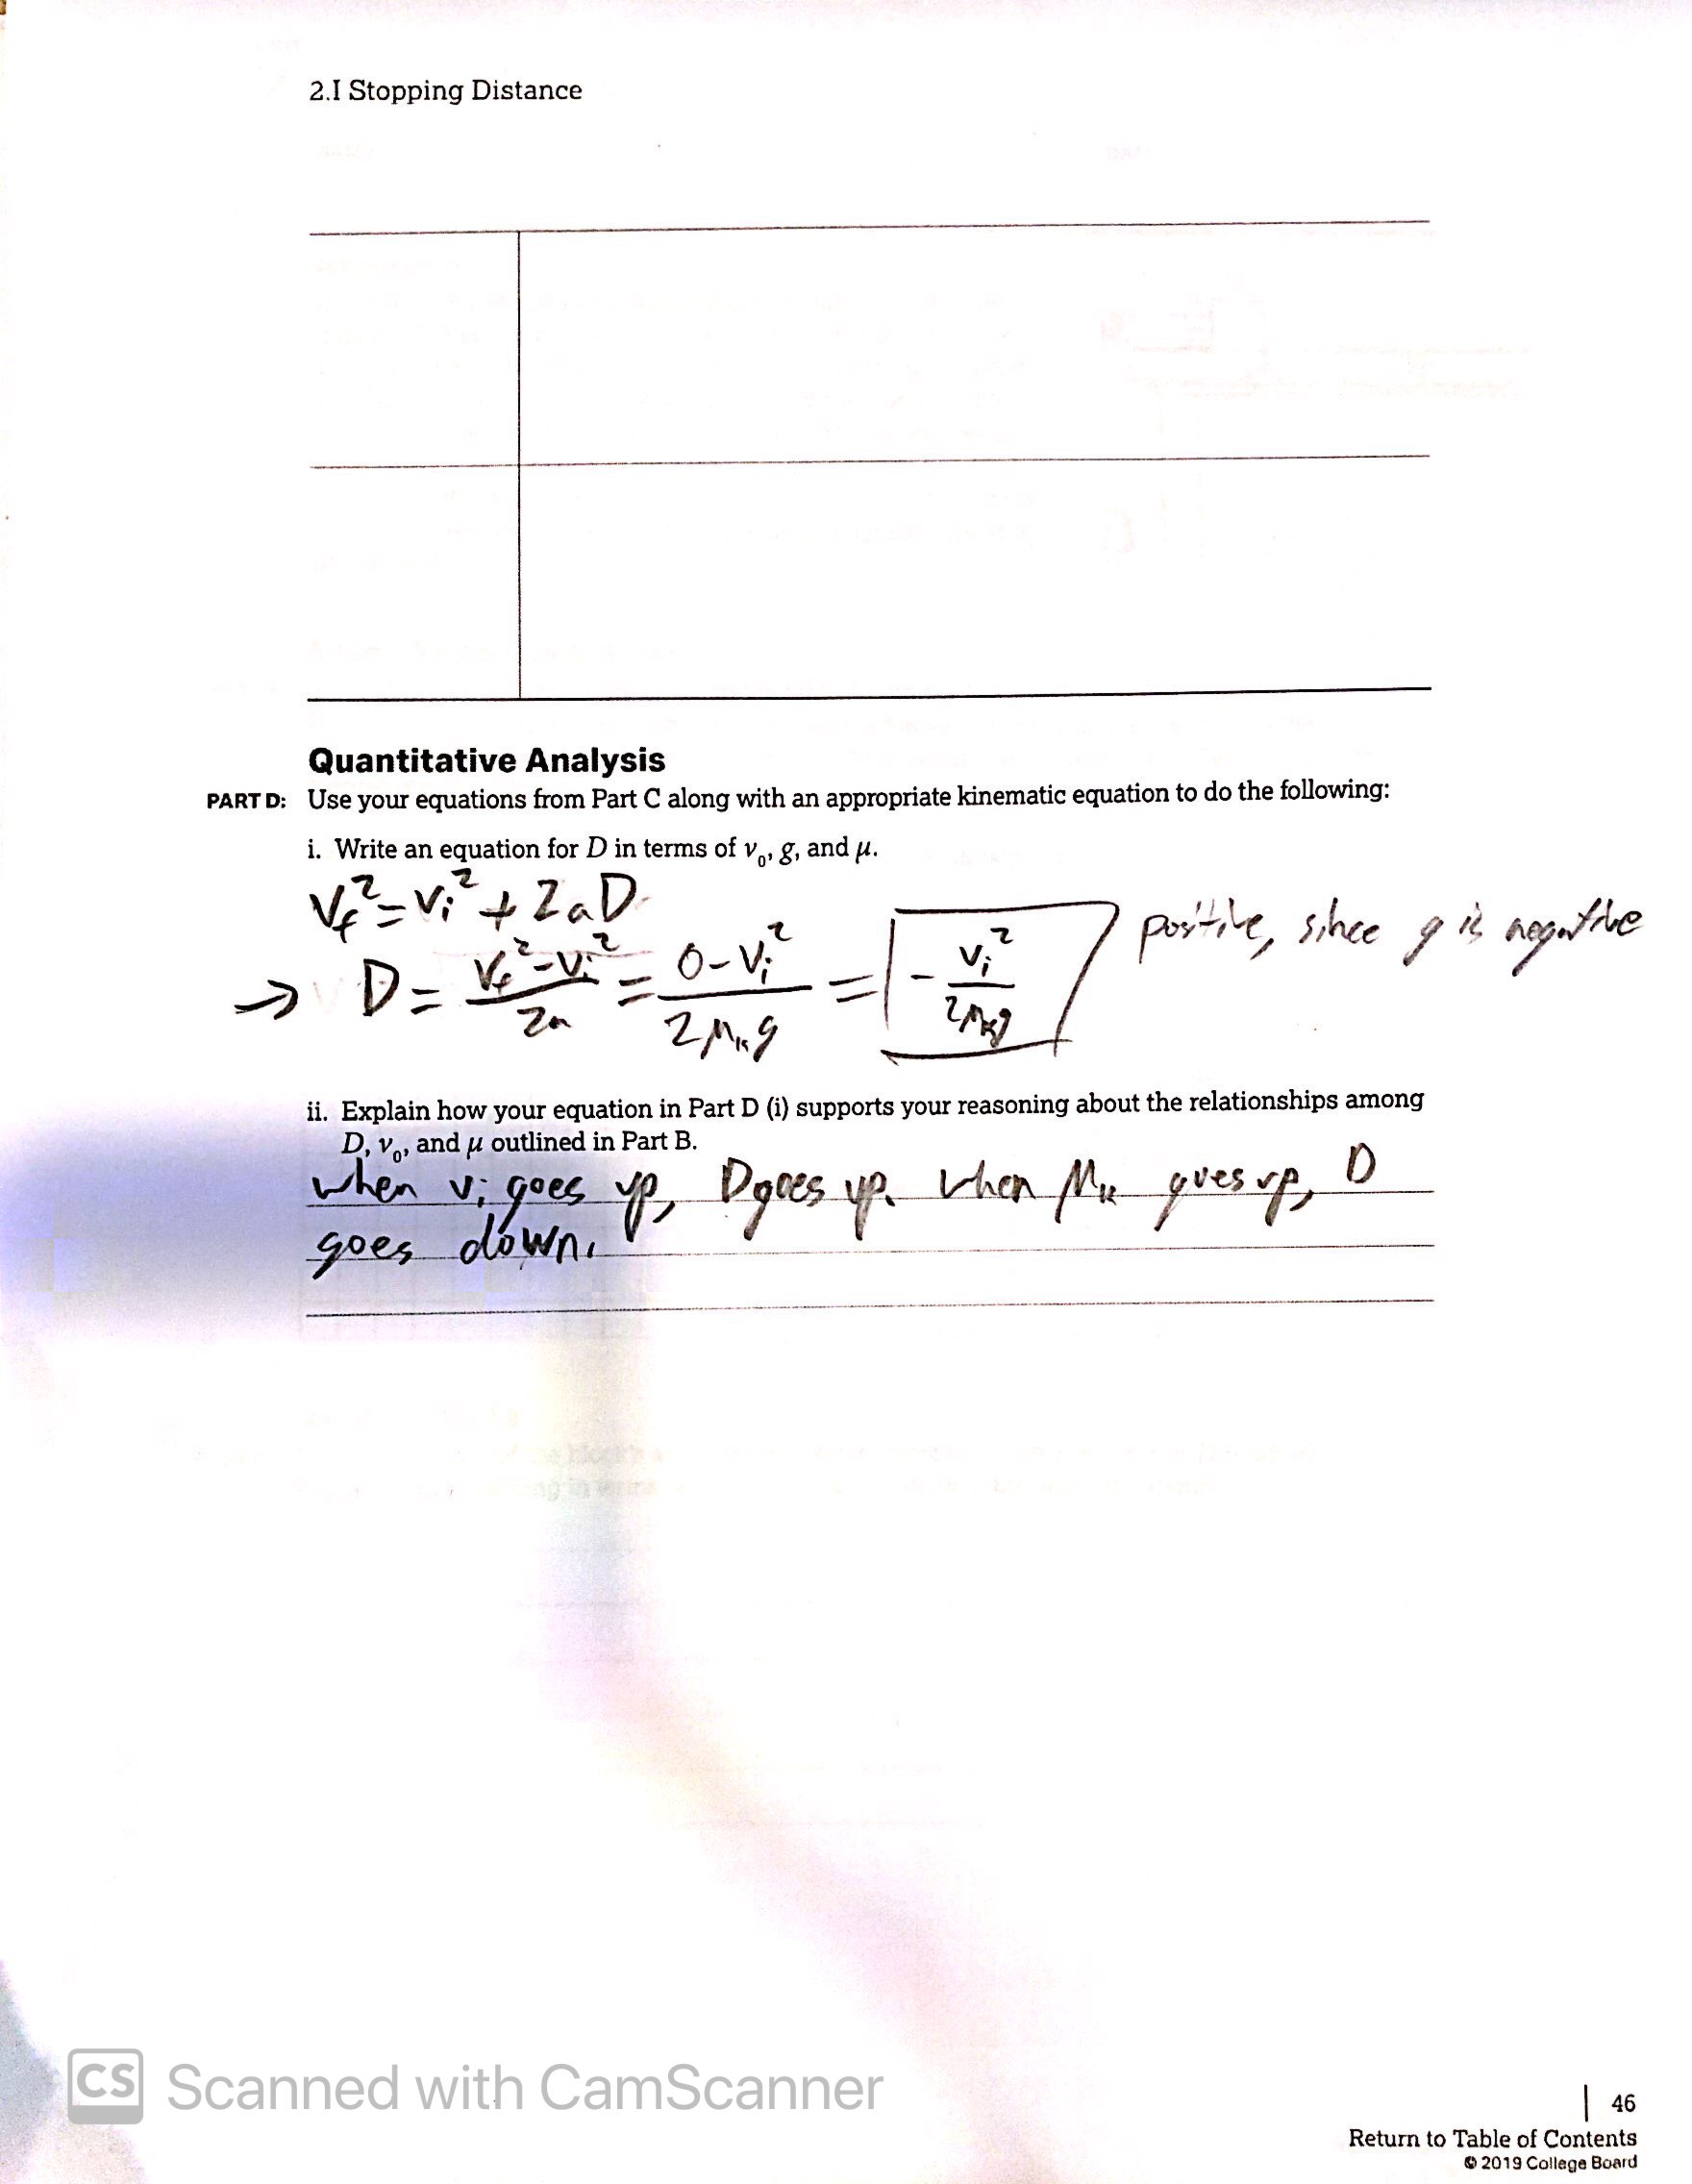 2.I Stopping Distance
Quantitative Analysis
PART D: Use your equations from Part C along with an appropriate kinematic equation to do the following:
i. Write an equation for D in terms of v₀, g, and μ.
v_f² = v_i² + 2aD
→ D = (v_f² - v_i²)/2a = (0 - v_i²)/(2μ_k g) = - v_i²/(2μ_k g) positive, since g is negative
ii. Explain how your equation in Part D (i) supports your reasoning about the relationships among
D, v₀, and μ outlined in Part B.
when v_i goes up, D goes up. when μ_k goes up, D
goes down.
CS Scanned with CamScanner
| 46
Return to Table of Contents
© 2019 College Board